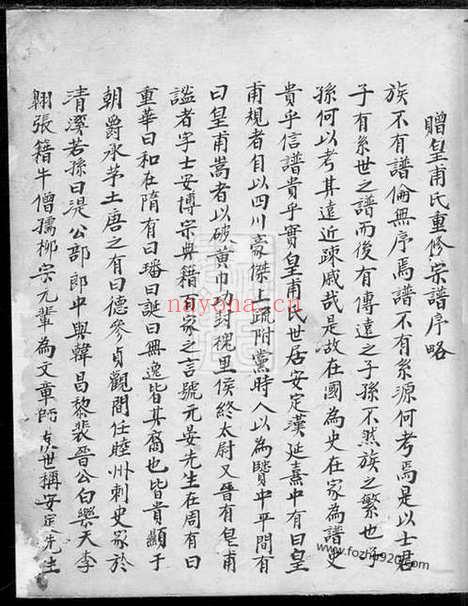 贈皇甫氏重修宗譜序略
族不有譜倫無序焉譜不有系源何考焉是以士君
子有系世之譜而後有傳遠之子孫不然族之繁也子
孫何以考其遠近疎戚哉是故在國為史在家為譜史
貴乎信譜貴乎實皇甫氏世居安定漢延熹中有曰皇
甫規者自以四川豪傑上疏附黨時人以為賢中平間有
曰皇甫嵩者以破黃巾功封槐里侯終太尉又晉有皇甫
謐者字士安博宗典籍百家之言號元晏先生在周有曰
重華曰和在隋有曰璠曰誕曰無逸皆其裔也皆貴顯于
朝爵承茅土唐之有曰德參貞觀間任睦州刺史家於
清溪若孫曰湜公部郎中與韓昌黎裴晉公白樂天李
翱張籍牛僧孺柳宗元輩為文章師友世稱安定先生
nayona.cn
www.fozhu920.com